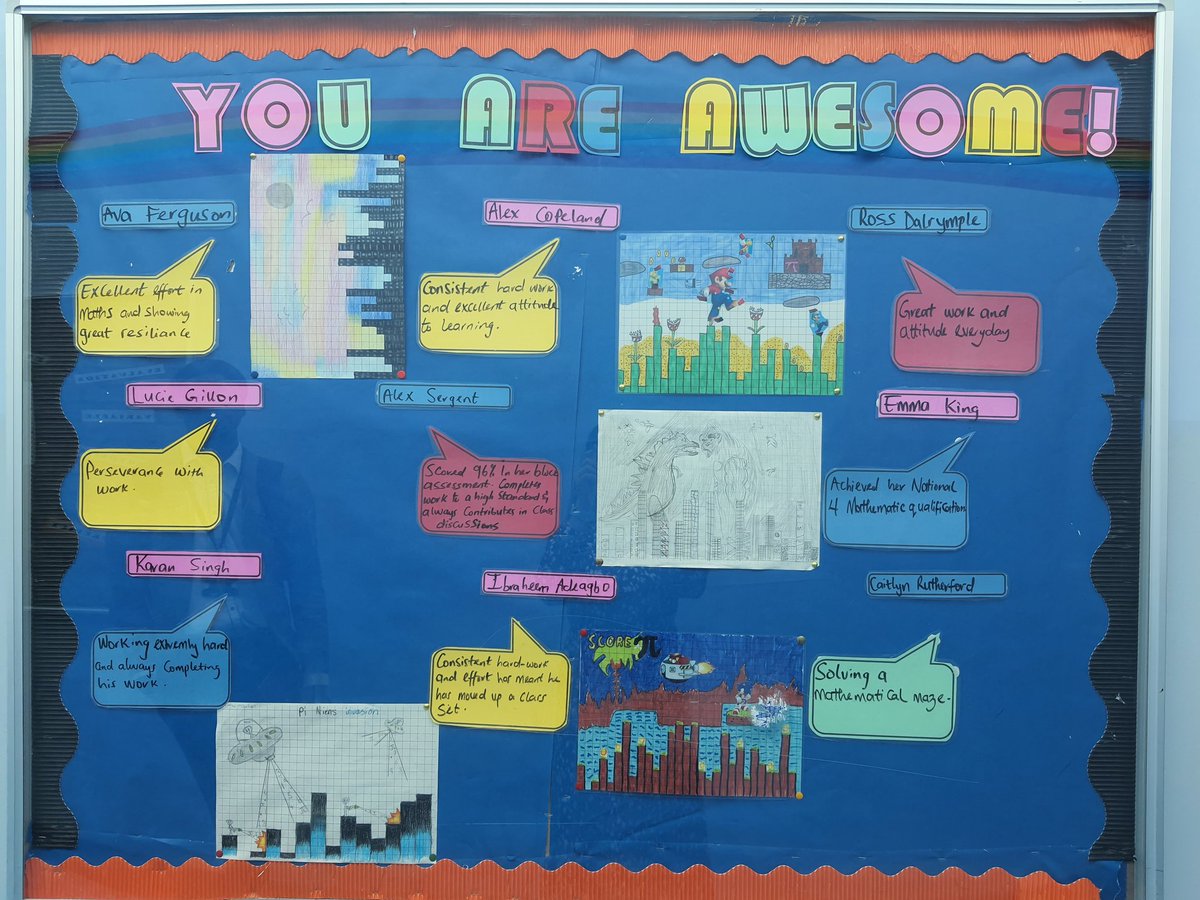 YOU ARE AWESOME!
Ava Ferguson
Excellent effort in
Maths and showing
great resiliance
Alex Copeland
Consistent hard work
and excellent attitude
to learning.
Ross Dalrymple
Great work and
attitude everyday
Lucie Gillon
Perseverance with
work.
Alex Sergent
Scored 96% in her block
assessment. Completes
work to a high standard &
always contributes in class
discussions
Emma King
Achieved her National
4 Mathematic qualification
Karan Singh
Working extremly hard
and always completing
his work.
Ibraheem Adeagbo
Consistent hard-work
and effort has meant he
has moved up a class
set.
Caitlyn Rutherford
Solving a
mathematical maze.
SCORE π
Pi Aliens invasion